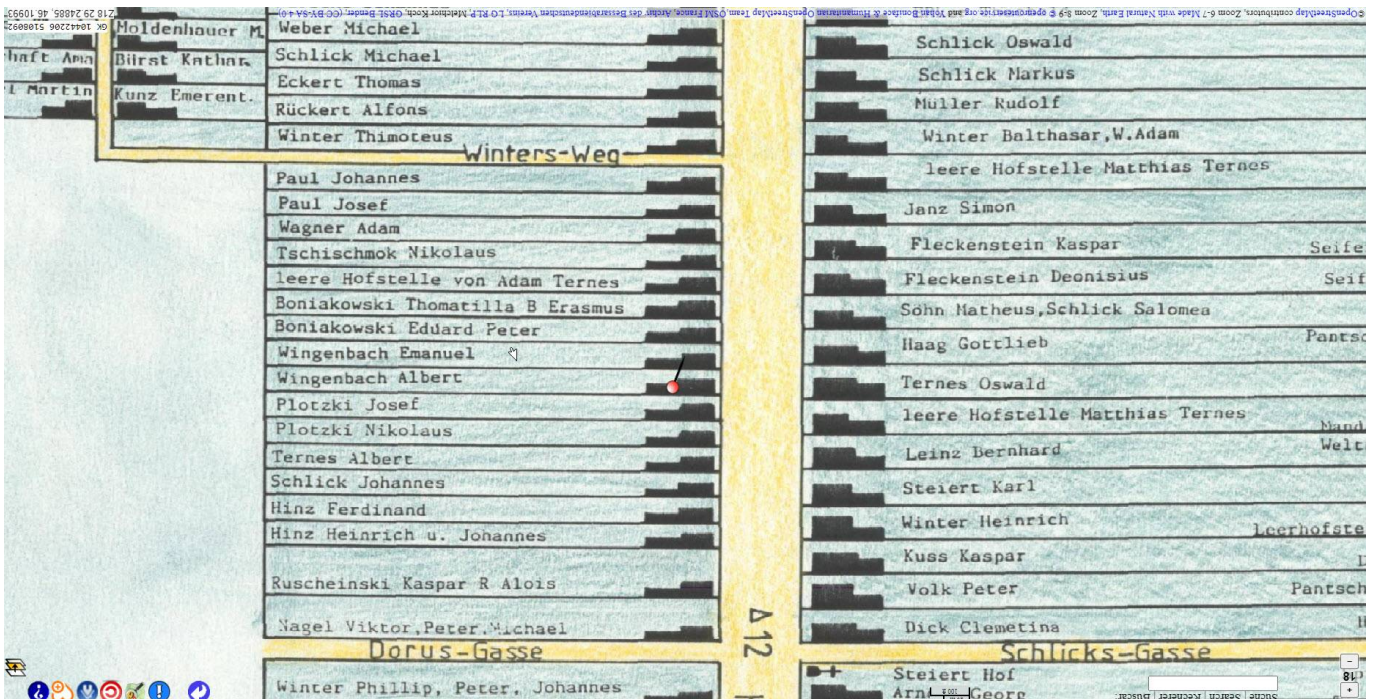 Z18 29.24885, 46.10993
GK 10442206 5108692
Moldenhauer M
Bürst Kathar.
Martin
Kunz Emerent.
Weber Michael
Schlick Michael
Eckert Thomas
Rückert Alfons
Winter Thimoteus
Winters-Weg
Paul Johannes
Paul Josef
Wagner Adam
Tschischmok Nikolaus
leere Hofstelle von Adam Ternes
Boniakowski Thomatilla B Erasmus
Boniakowski Eduard Peter
Wingenbach Emanuel
Wingenbach Albert
Plotzki Josef
Plotzki Nikolaus
Ternes Albert
Schlick Johannes
Hinz Ferdinand
Hinz Heinrich u. Johannes
Ruscheinski Kaspar R Alois
Nagel Viktor,Peter,Michael
Dorus-Gasse
Winter Phillip, Peter, Johannes
Δ12
Schlick Oswald
Schlick Markus
Müller Rudolf
Winter Balthasar,W.Adam
leere Hofstelle Matthias Ternes
Janz Simon
Fleckenstein Kaspar
Seife
Fleckenstein Deonisius
Seif
Söhn Matheus,Schlick Salomea
Haag Gottlieb
Pantsc
Ternes Oswald
leere Hofstelle Matthias Ternes
Mand
Leinz Bernhard
Welt
Steiert Karl
Winter Heinrich
Leerhofste
Kuss Kaspar
Volk Peter
Pantsch
Dick Clemetina
Schlicks-Gasse
Steiert Hof
Georg
18
Suche Search Recherer Buscar